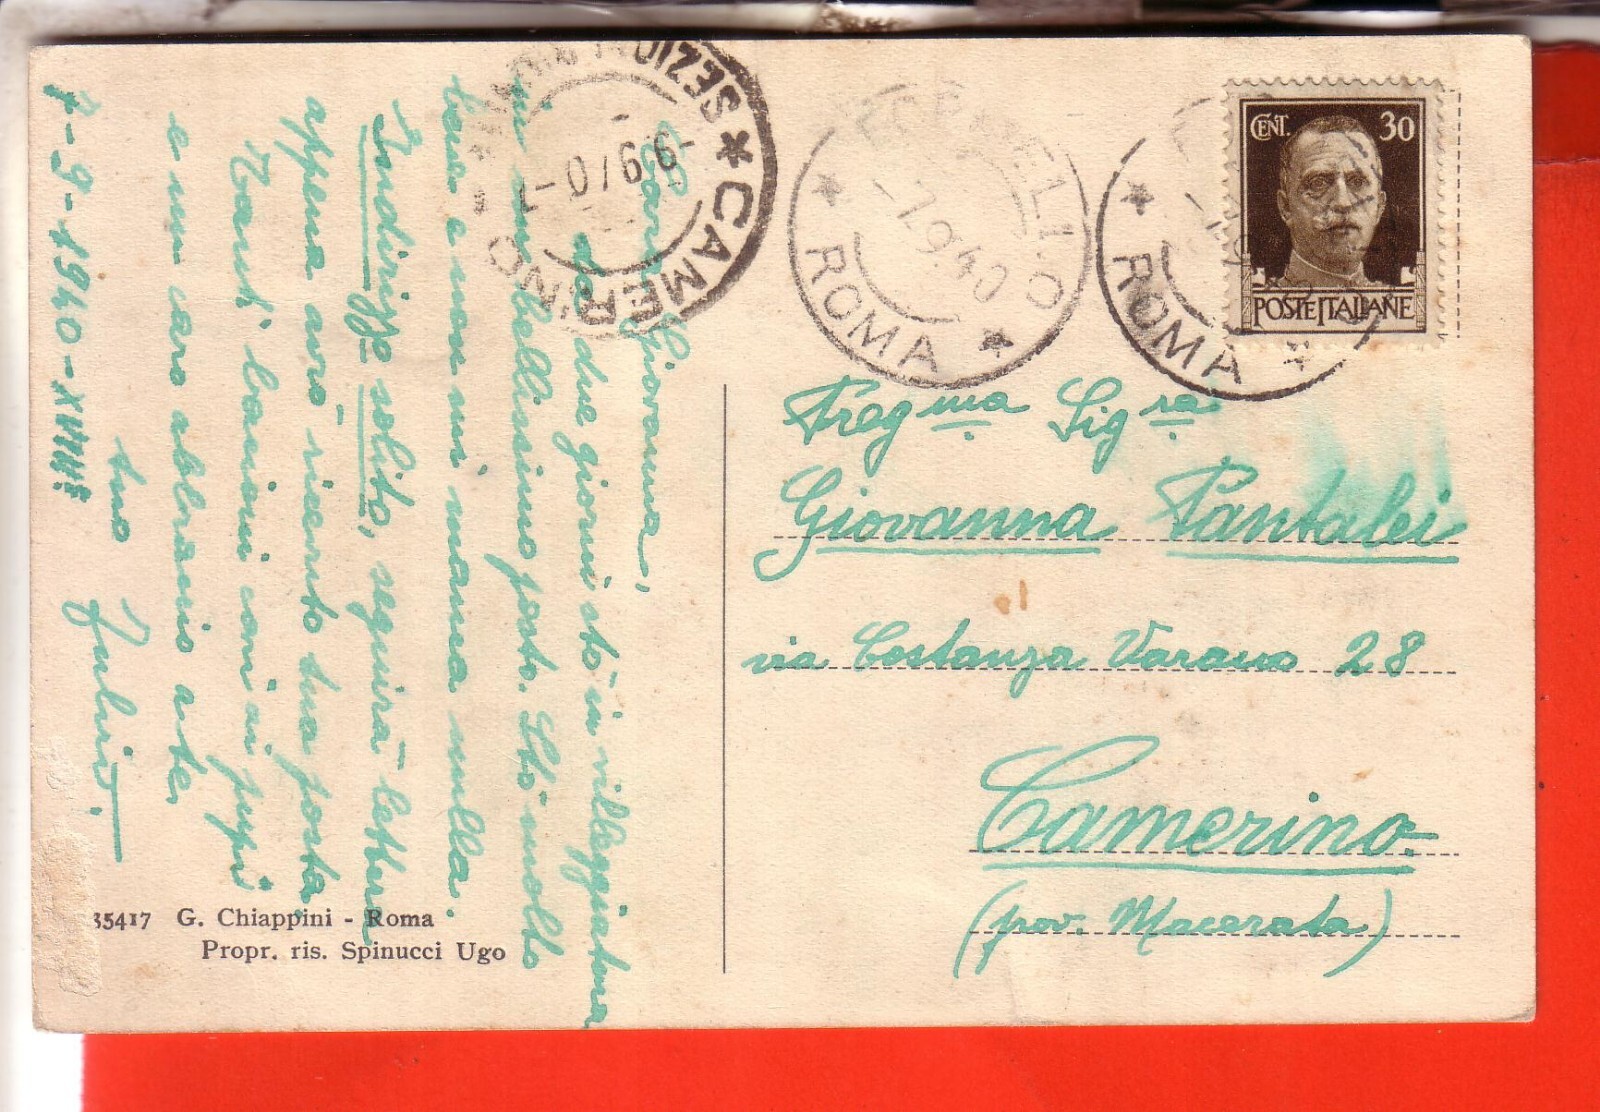 Cara Giovanna,
da due giorni sto in villeggiatura
in un bellissimo posto. Sto molto
bene e non mi manca nulla.
Indirizzo solito, seguirà lettera
appena avrò ricevuto tua posta
Tanti bacioni cari ai pupi
e un caro abbraccio a te,
tuo Julio
7-9-1940-XVIII°
35417 G. Chiappini - Roma
Propr. ris. Spinucci Ugo
CAMERINO
9 9 40
FORMELLO
-7.9.40
ROMA
ROMA
CENT. 30
POSTE ITALIANE
Preg ma Sig ra
Giovanna Pantalei
via Costanza Varano 28
Camerino.
(prov. Macerata)